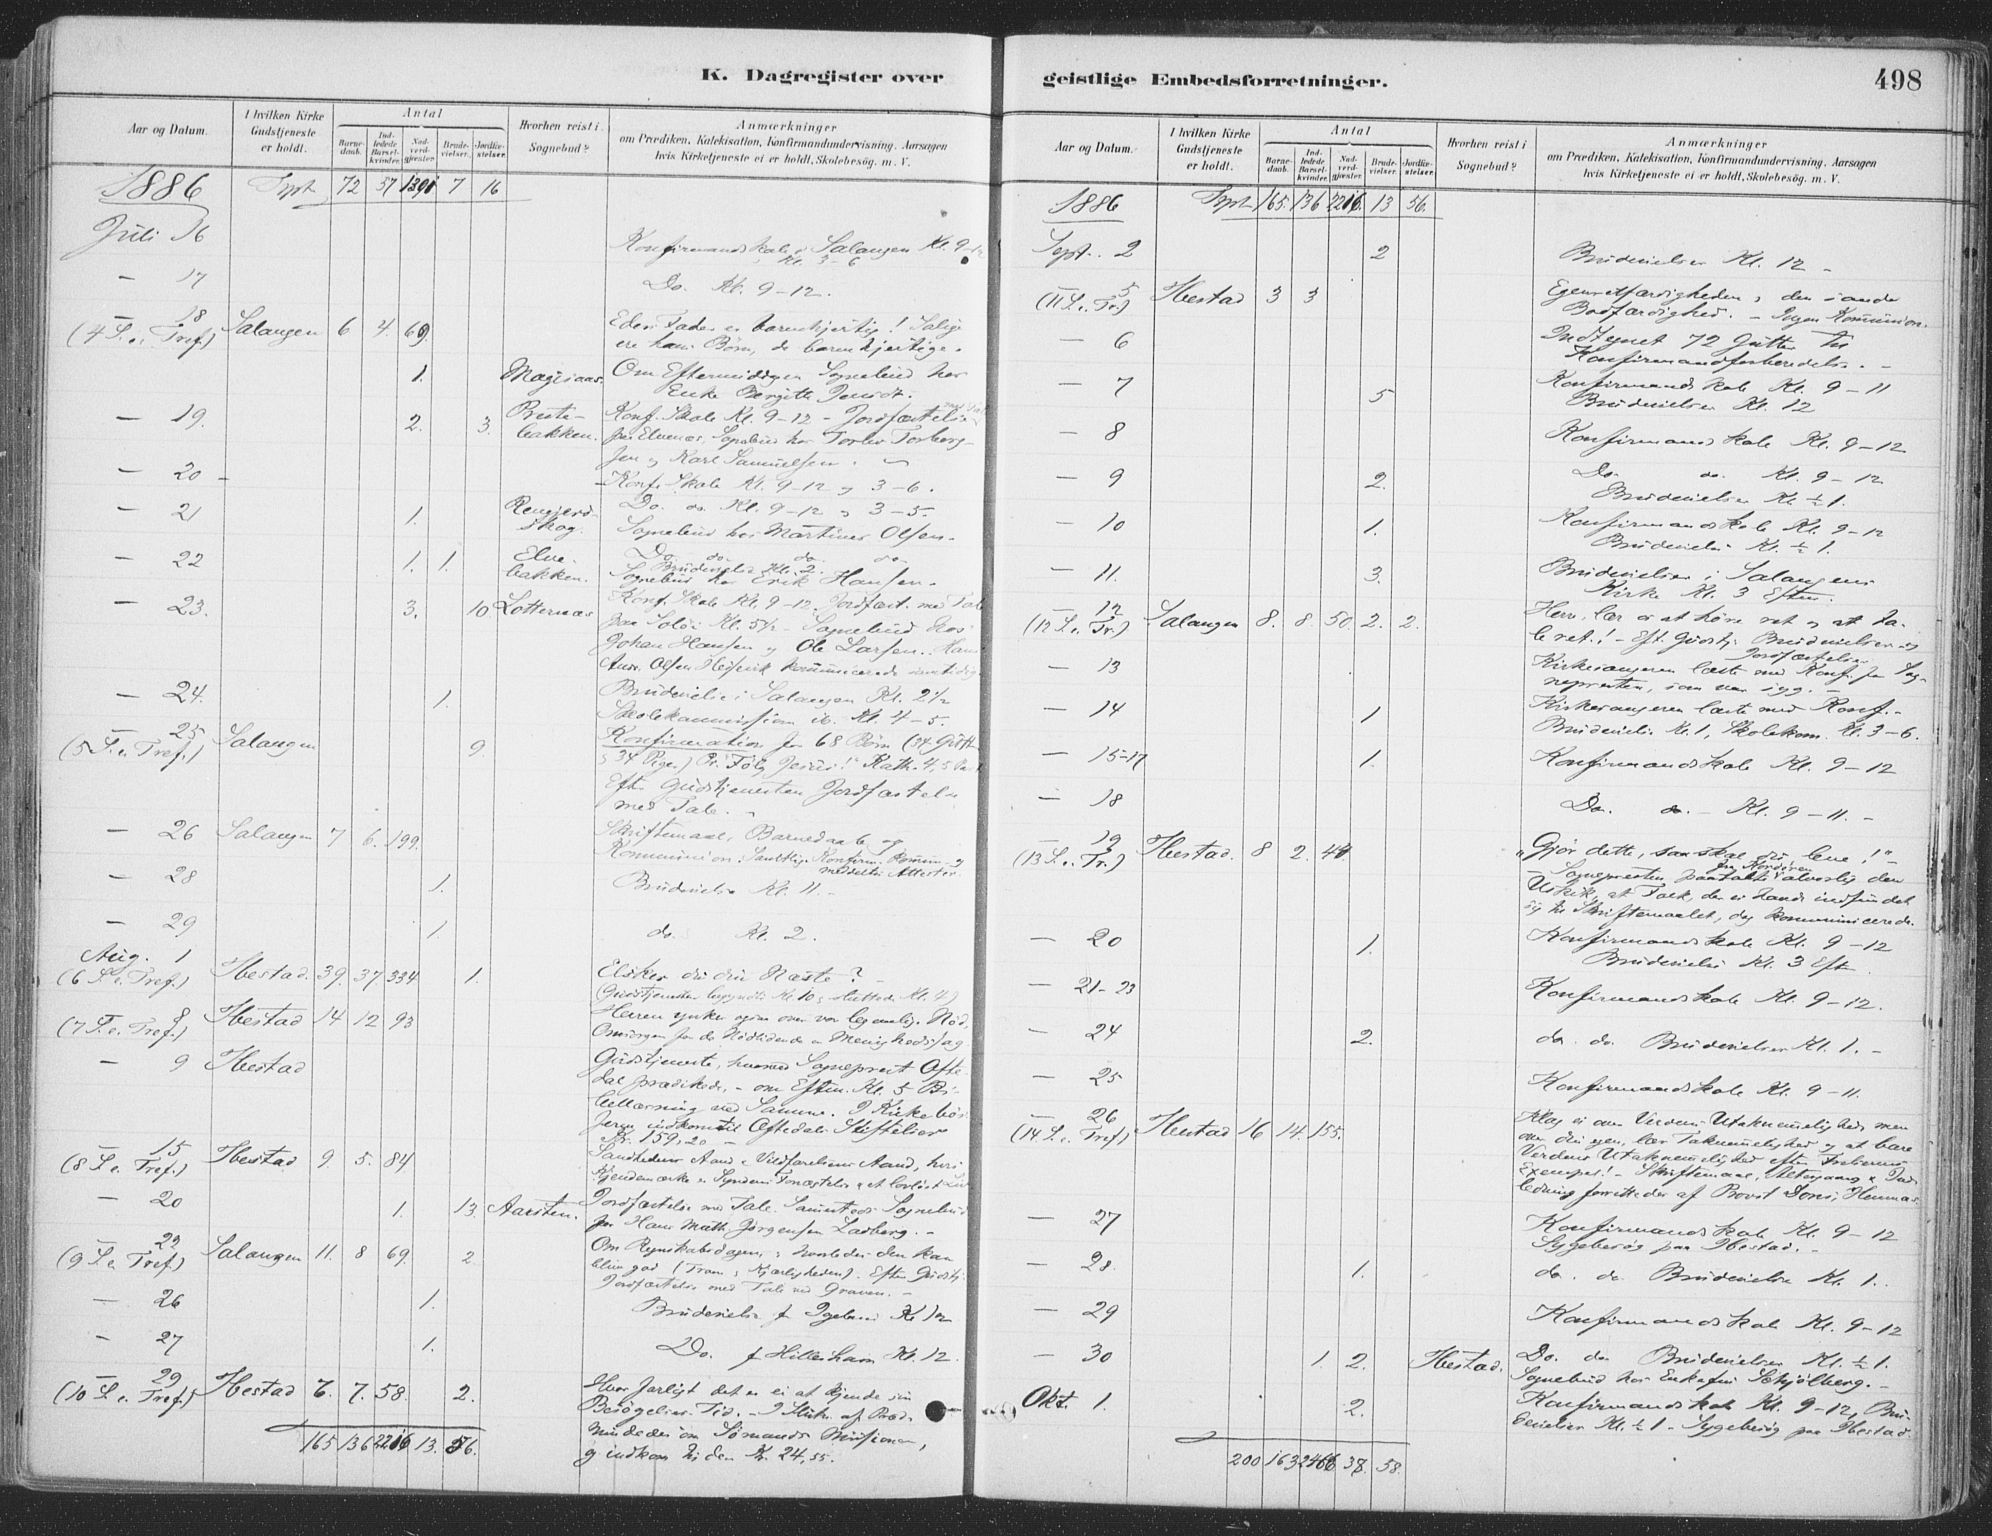 K. Dagregister over
Aar og Datum.
I hvilken Kirke Gudstjeneste er holdt.
Antal
Barnedaab.
Indledede Barselkvinder.
Nadverdgjester.
Brudevielser.
Jordfæstelser.
Hvorhen reist i Sognebud?
Anmærkninger
om Prædiken, Katekisation, Konfirmandundervisning. Aarsagen
hvis Kirketjeneste ei er holdt, Skolebesög. m. V.
1886 72 57 1301 7 16
Juli 16 Konfirmandskole i Salangen Kl. 9-12
Kl. 3-6
— 17 Do. Kl. 9-12.
— 18
(4 S. e. Tref.) Salangen 6 4. 69. Eders Fader er barmhjertig! Salige
ere hans Börn, de barmhjertige.
1. Om Eftermiddagen Sognebud hos
Enke Bergitte
— 19. 2. 3. Konf. Skole Kl. 9-12 - Jordfæstelse
bakken. paa Elvenes, Sognebud hos Torberg-
sen og Karl Samuelsen.
— 20 - Konf. Skole Kl. 9-12 og 3-6.
— 21 1. Do. do. Kl. 9-12 og 3-5.
skog. Sognebud hos Martinus Olsen.
— 22 1. 1. Elve- Do. do. do. do.
Brudevielse Kl. 2.
bakken. Sognebud hos Erik Hansen.
— 23. 3. 10 Lotternæs Konf. Skole Kl. 9-12. Jordfæst. med Tale
paa Kl. 5½ - Sognebud hos
Johan Hansen og Ole Larsen. Hans
Olsen kommunicerede samtidig
— 24. 1. Brudevielse i Salangen Kl. 2½
Skolekommission ib. Kl. 4-5.
— 25 Konfirmation for 68 Börn (34 Gutt.
(5 S. e. Tref.) Salangen 9. 34 Piger) Pr. "Fölg Jesus!"
Efter Gudstjenesten Jordfæstelse
med Tale.
— 26 Salangen 7 6. 199. Skriftemaal, Barnedaab og
Kommunion. Samtlige Konfirm. og
meddelte Attester.
— 28 1. Brudevielse Kl. 11. -
— 29 1. do. Kl. 2.
Aug. 1
(6 S. e. Tref.) Ibestad. 39. 37 334 1. Elsker du din Næste? -
(Gudstjenesten begyndte Kl. 10 og sluttede Kl. 4)
— 8
(7 S. e. Tref.) Ibestad 14 12 93 Herren ynkes ogsaa over vor legemlige Nöd,
Omsorgen for de Nödlidende en Menighedssag.
— 9 Ibestad Gudstjeneste, hvorved Sogneprest Ofte-
dal prædikede, - om Eftm. Kl. 5 Bi-
bellæsning ved Samme. I Kirkebös-
serne indkom til Oftedals Stiftelser
Kr. 159,20 -
— 15
(8 S. e. Tref.) Ibestad 9. 5. 84 Sandhedens Aand og Vildfarelsens Aand,
— 20 1. 13. Aarsten. Jordfæstelse med Tale. Samme Sted Sognebud
for Hans Math. Jörgensen Ladberg. -
— 22
(9 S. e. Tref.) Salangen 11. 8 69. 2. Om Regnskabsdagen, og hvorledes den kan
blive god (Troen og Kjærligheden). Efter Gudstj.
Jordfæstelse med Tale ved Graven. -
— 26 1. Brudevielse f Kl 12
— 27 1. Do. f Hilleshavn Kl. 12.
— 29
(10 S. e. Tref.) Ibestad 6. 7. 58. 2. Hvor farligt det er ei at kjende sin
Besögelses Tid. - I Slutn. af Præd.
mindedes om Sömands Missionen,
og indkom til den Kr. 24,55.
165 136 2216 13. 56.
geistlige Embedsforretninger.
498
Aar og Datum.
I hvilken Kirke Gudstjeneste er holdt.
Antal
Barnedaab.
Indledede Barselkvinder.
Nadverdgjester.
Brudevielser.
Jordfæstelser.
Hvorhen reist i Sognebud?
Anmærkninger
om Prædiken, Katekisation, Konfirmandundervisning. Aarsagen
hvis Kirketjeneste ei er holdt, Skolebesög. m. V.
1886 165. 136 2216. 13 56.
Sept. 2 2 Brudevielser Kl. 12 -
— 5
(11 S. e. Tr.) Ibestad 3 3 Egenretfærdigheden og den sande
Bodfærdighed. - Ingen Kommunion.
— 6 Indtegnet 72 Gutter til
Konfirmandforberedelse. -
— 7 5 Konfirmandskole Kl. 9-11
Brudevielser Kl. 12
— 8 Konfirmandskole Kl. 9-12
— 9 2. Do. do. Kl. 9-12
Brudevielser Kl. ½1.
— 10 1. Konfirmandskole Kl. 9-12
Brudevielse Kl. ½1.
— 11. 3. Brudevielser i Salangens
Kirke Kl. 3 Eftm.
— 12
(12 S. e. Tr.) Salangen 8. 8. 50. 2. 2. Herre, lær os at höre ret og at ta-
le ret! - Eft. Gudstj. Brudevielser og
Jordfæstelser
— 13 Kirkesangeren læste med Konf. for Sog-
nepresten, som var syg. -
— 14 1 Kirkesangeren læste med Konf. -
Brudevielse Kl. 1, Skolekom. Kl. 3-6.
— 15-17 1. Konfirmandskole Kl. 9-12
— 18 Do. do. - Kl. 9-11. -
— 19
(13 S. e. Tr.) Ibestad. 8 2. 41 "Gjör dette, saa skal du leve!" -
fra Kordören
Sognepresten paatalte alvorlig den
Uskik, at Folk, der ei havde indfundet
sig til Skriftemaalet, dog kommunicerede.
— 20 1. Konfirmandskole Kl. 9-12
Brudevielse Kl. 3 Eft.
— 21-23 Konfirmandskole Kl. 9-12.
— 24 2. do. do. Brudevielser Kl. 1. -
— 25 Konfirmandskole Kl. 9-11.
— 26
(14 S. e. Tref.) Ibestad 16 14. 155. Klag ei over Verdens Utaknemmelighed, men
over din egen, lær Taknemmelighed og at bære
Verdens Utaknemmelighed efter Frelserens
Exempel! - Skriftemaal, Altergang
ledning forrettedes af
— 27 Konfirmandskole Kl. 9-12
Sygebesög paa Ibestad. -
— 28 1. do. do. Brudevielse Kl. 1.
— 29 Konfirmandskole Kl. 9-12
— 30 1. 2. Ibestad. Do. do Brudevielser Kl. ½1.
Sognebud hos Enkefru Schjölberg. -
Okt. 1. 2. Konfirmandskole Kl. 9-12, Bru-
devielser Kl. ½1 - Sygebesög paa Ibestad.
200 163 2466 38. 58.